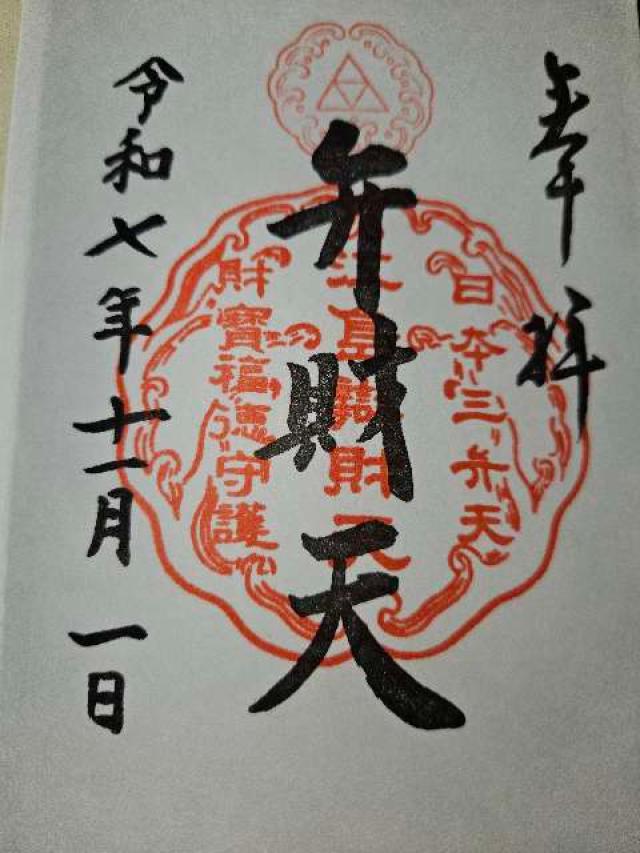 奉拝
弁財天
日本三弁天
江島辯財天
財寶福徳守護
令和七年十一月一日